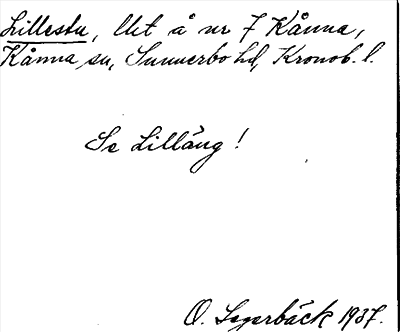 Lillestu, lht å nr 7 Kånna,
Kånna sn, Sunnerbo hd, Kronob. l.
Se Lilläng!
O. Sagerbäck 1937.